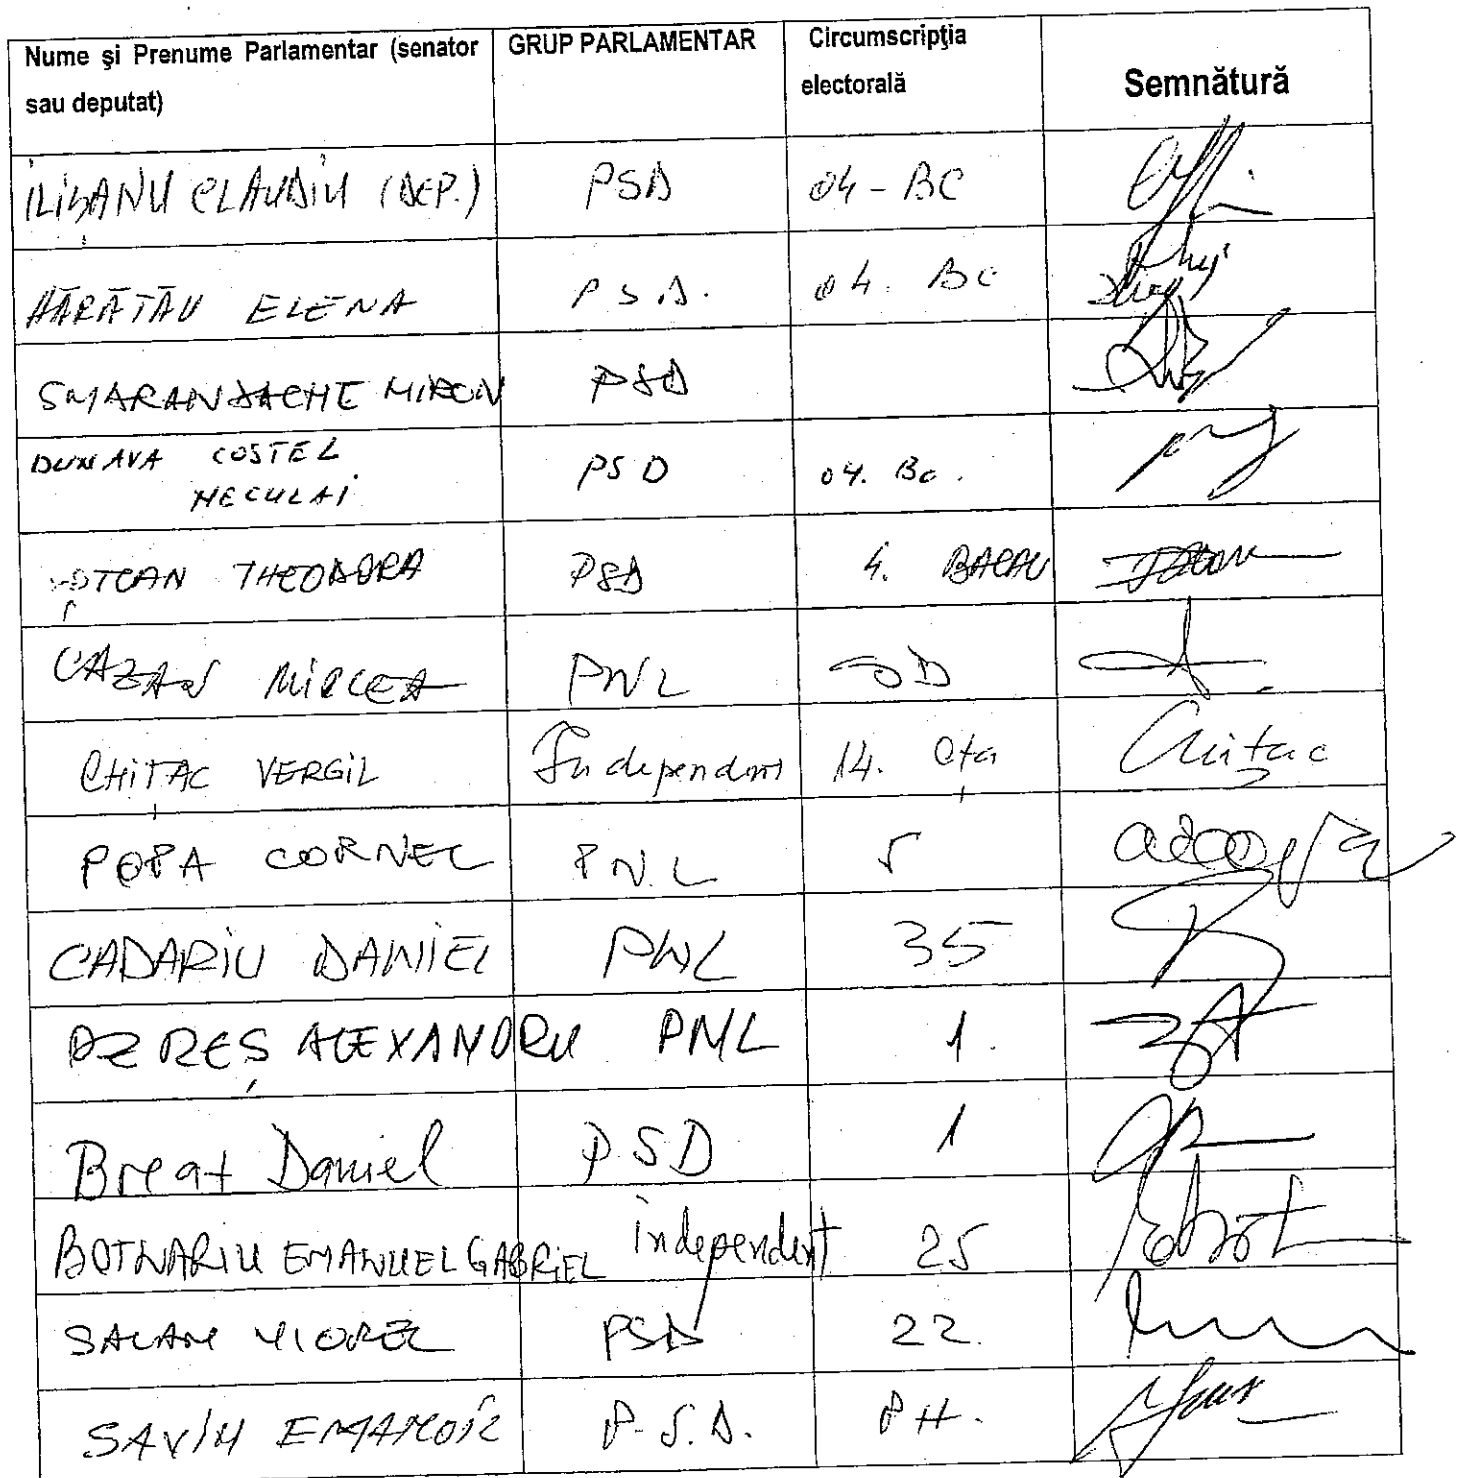 Nume și Prenume Parlamentar (senator sau deputat) GRUP PARLAMENTAR Circumscripția electorală Semnătură
ILIȘANU CLAUDIU (DEP.) PSD 04 - BC
HĂRĂTĂU ELENA P S D. 04. BC
SMARANDACHE MIRON PSD
DUNAVA COSTEL NECULAI PSD 04. Bc.
ȘOTCAN THEODORA PSD 4. BACAU
CAZAN MIRCEA PNL
CHIȚAC VERGIL Independent 14. Cța Chițac
POPA CORNEL P.N.L 5
CADARIU DANIEL PNL 35
PEREȘ ALEXANDRU PNL 1.
Breat Daniel P.S.D 1
BOTNARIU EMANUEL GABRIEL independent 25
SALAN VIOREL PSD 22.
SAVIN EMANOIL P.S.D. PH.